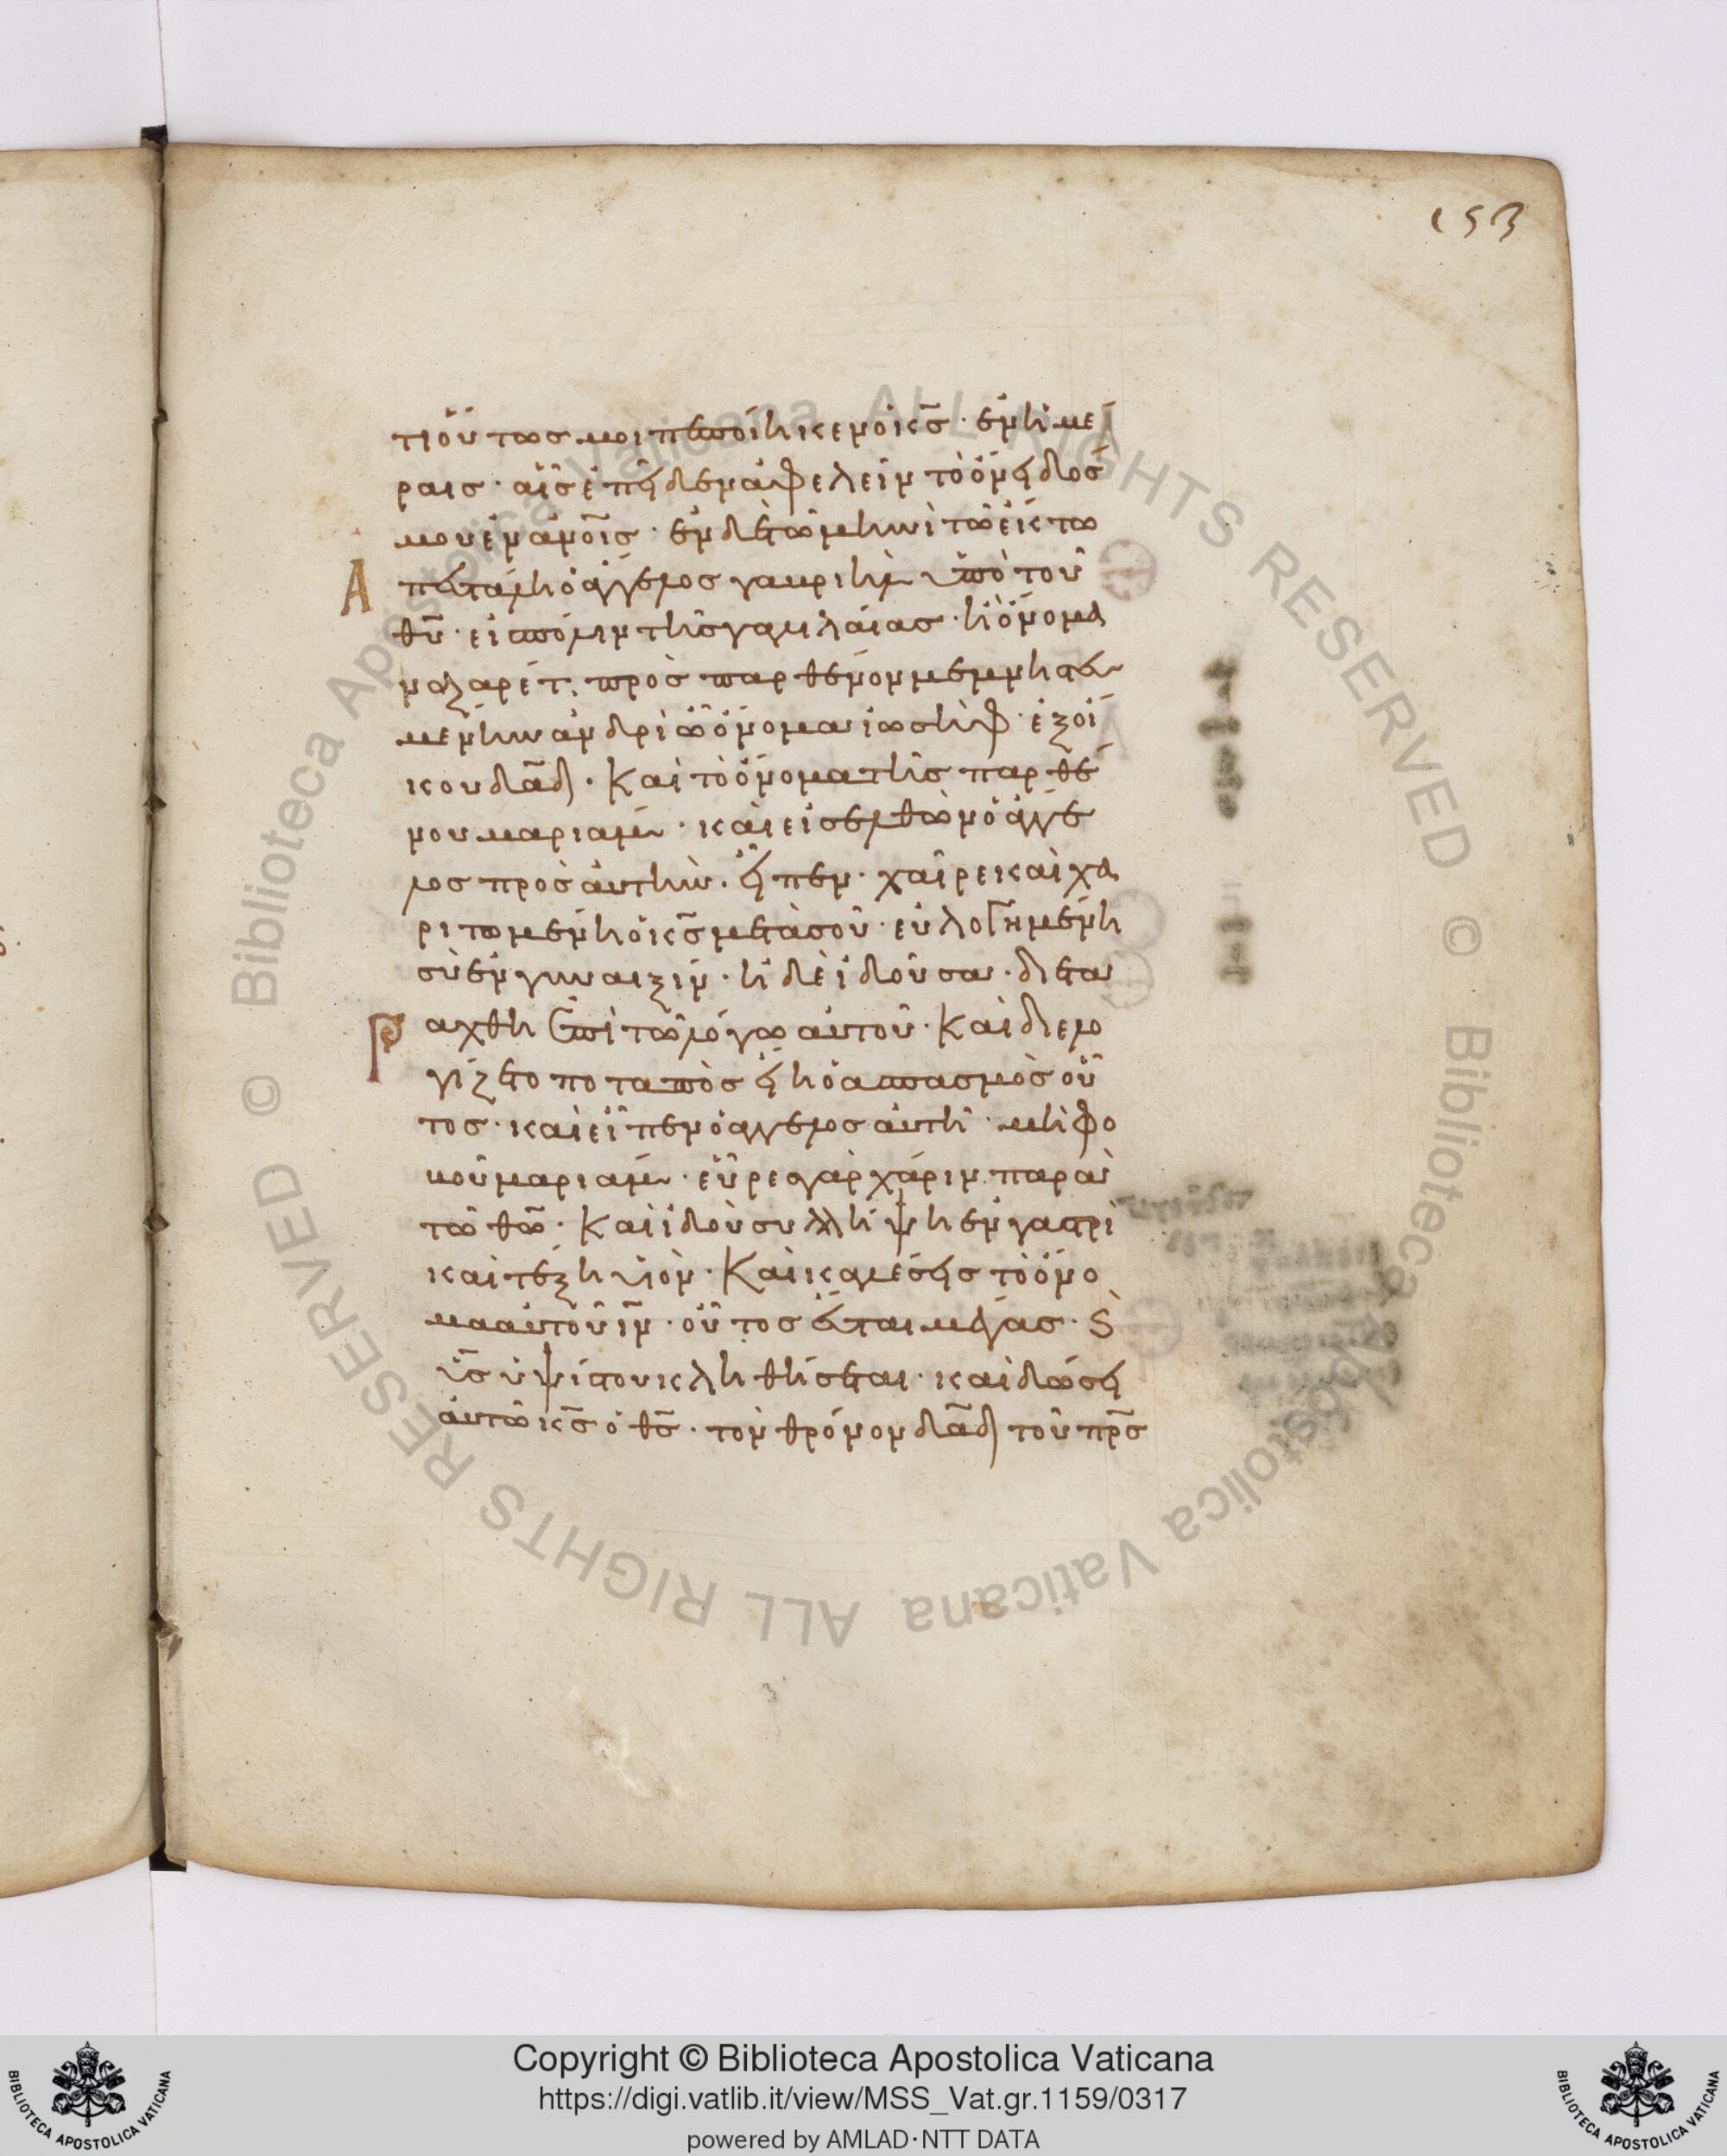 153
τι οὕτως μοι πεποίηκεν ὁ κ̅ς̅ · ἐν ἡμέ
ραις · αἷς ἐπεῖδεν ἀφελεῖν τὸ ὄνειδος
μου ἐν ἀνο̅ι̅ς · ἐν δὲ τῶ μηνὶ τῶ ἕκτω
Α
πεστάλη ὁ ἄγγελος γαβριὴλ ὑπὸ τοῦ
θ̅υ̅ · εἰς πόλιν τῆς γαλιλαίας · ἧ ὄνομα
ναζαρέτ · πρὸς παρθένον μεμνηστευ
μένην ἀνδρὶ ὧ ὄνομα ἰωσήφ · ἐξ οἴ
κου δ̅α̅δ̅ · Καὶ τὸ ὄνομα τῆς παρθέ
νου μαριάμ · καὶ εἰσελθὼν ὁ ἄγγε
λος πρὸς αὐτὴν · εἶπεν · χαῖρε κεχα
ριτωμένη ὁ κ̅ς̅ μετὰ σοῦ · εὐλογημένη
σὺ ἐν γυναιξίν · ἡ δὲ ἰδοῦσα · διετα
Ρ
άχθη ἐπὶ τῶ λόγω αὐτοῦ · Καὶ διελο
γίζετο ποταπὸς εἴη ὁ ἀσπασμὸς οὗ
τος · καὶ εἶπεν ὁ ἄγγελος αὐτῆ · μὴ φο
βοῦ μαριάμ · εὗρες γὰρ χάριν παρὰ
τῶ θ̅ω̅ · Καὶ ἰδοὺ συλλήψη ἐν γαστρὶ
καὶ τέξη υἱὸν · Καὶ καλέσεις τὸ ὄνο
μα αὐτοῦ ι̅ν̅ · οὗτος ἔσται μέγας · ϗ
υ̅ς̅ ὑψίστου κληθήσεται · καὶ δώσει
αὐτῶ κ̅ς̅ ὁ θ̅ς̅ · τὸν θρόνον δ̅α̅δ̅ τοῦ π̅ρ̅ς̅
Biblioteca Apostolica Vaticana ALL RIGHTS RESERVED ©
Biblioteca Apostolica Vaticana ALL RIGHTS RESERVED ©
Copyright © Biblioteca Apostolica Vaticana
https://digi.vatlib.it/view/MSS_Vat.gr.1159/0317
powered by AMLAD·NTT DATA
BIBLIOTECA APOSTOLICA VATICANA
BIBLIOTECA APOSTOLICA VATICANA